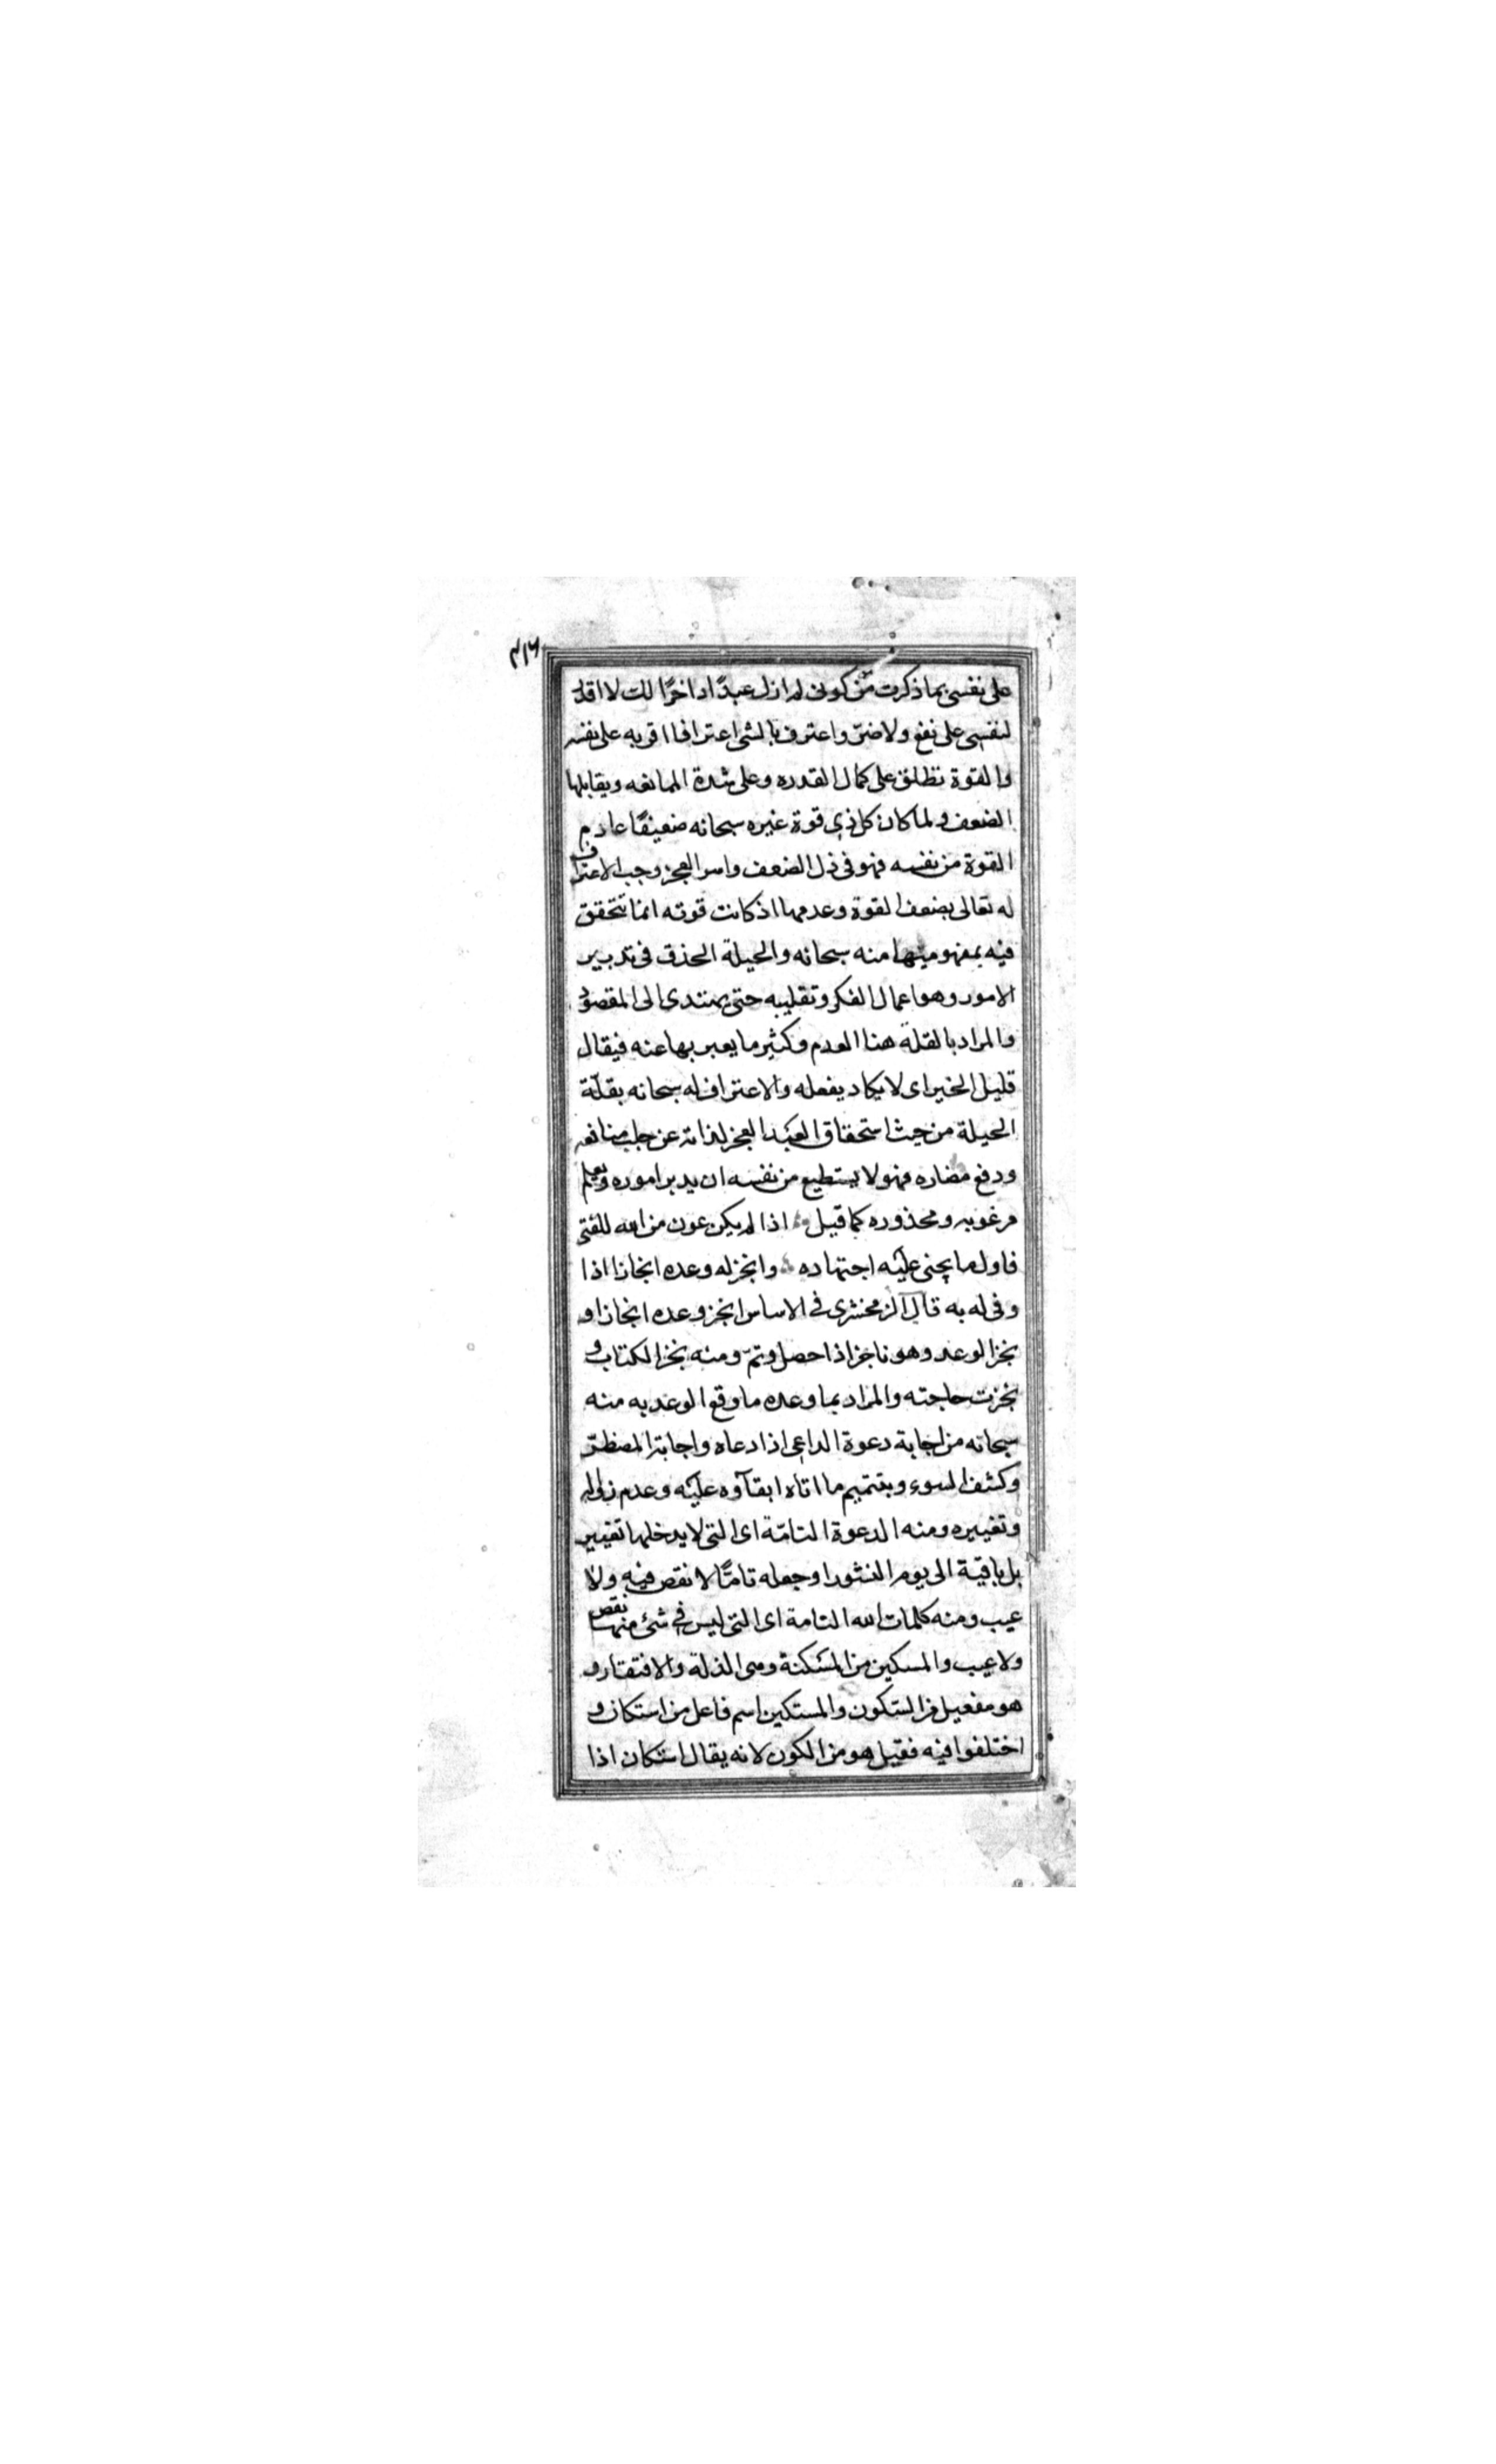 ۴۱۶
على نفسى بما ذكرت من كونى لم ازل عبدًا داخرًا لك لا اقدر
لنفسى على نفع ولا ضرّ واعترف بالشى اعترافا اقر به على نفسه
والقوة تطلق على كمال القدره وعلى شدة الممانعه ويقابلها
الضعف ولما كان كل ذى قوة غيره سبحانه ضعيفًا عادم
القوة من نفسه فهو فى ذل الضعف واسر العجز وجب الاعتراف
له تعالى بضعف القوة وعدمها اذ كانت قوته انما تتحقق
فيه بمفهوميتها منه سبحانه والحيلة الحذق فى تدبير
الامور وهو اعمال الفكر وتقليبه حتى يهتدى الى المقصود
والمراد بالقلة هنا العدم وكثير ما يعبر بها عنه فيقال
قليل الخير اى لا يكاد يفعله والاعتراف له سبحانه بقلّة
الحيلة من حيث استحقاق العبد العجز لذاته عن جلب منافعه
ودفع مضاره فهو لا يستطيع من نفسه ان يدبر اموره ويعلم
مرغوبه ومحذوره كما قيل اذا لم يكن عون من الله للفتى
فاول ما يجنى عليه اجتهاده وانجز له وعده انجازا اذا
وفى له به قال الزمخشرى فى الاساس انجز وعده انجازا و
نجز الوعد وهو ناجز اذا حصل وتمّ ومنه نجز الكتاب و
نجزت حاجته والمراد بما وعده ما وقع الوعد به منه
سبحانه من اجابة دعوة الداعى اذا دعاه واجابة المضطرّ
وكشف السوء وبتتميم ما اتاه ابقآؤه عليه وعدم زواله
وتغييره ومنه الدعوة التامّة اى التى لا يدخلها تغيير
بل باقية الى يوم النشور او جعله تامًّا لا نقص فيه ولا
عيب ومنه كلمات الله التامة اى التى ليس فى شئ منها نقص
ولا عيب والمسكين من المسكنة وهى الذلة والافتقار و
هو مفعيل من السّكون والمستكين اسم فاعل من استكان و
اختلفوا فيه فقيل هو من الكون لانه يقال استكان اذا